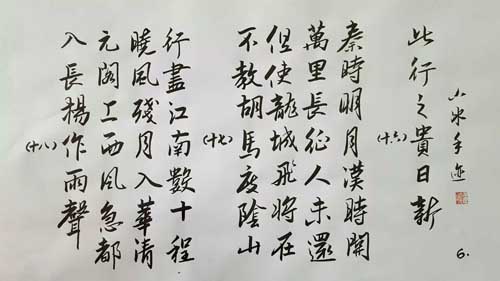 手迹
此行之貴日新
(十六)
秦時明月漢時關
萬里長征人未還
但使龍城飛將在
不教胡馬度陰山
(十七)
行盡江南數十程
曉風殘月入華清
元閣上西風急都
入長楊作雨聲
(十八)
6.